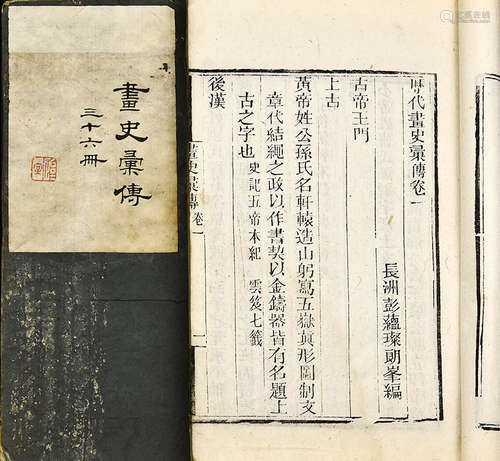 畫史彙傳
三十六冊
歷代畫史彙傳卷一
長洲彭蘊璨朗峯編
古帝王門
上古
黃帝姓公孫氏名軒轅造山躬寫五嶽眞形圖制文
章代結繩之政以作書契以金鑄器皆有名題上
古之字也 史記五帝本紀 雲笈七籤
後漢
畫史彙傳 卷一